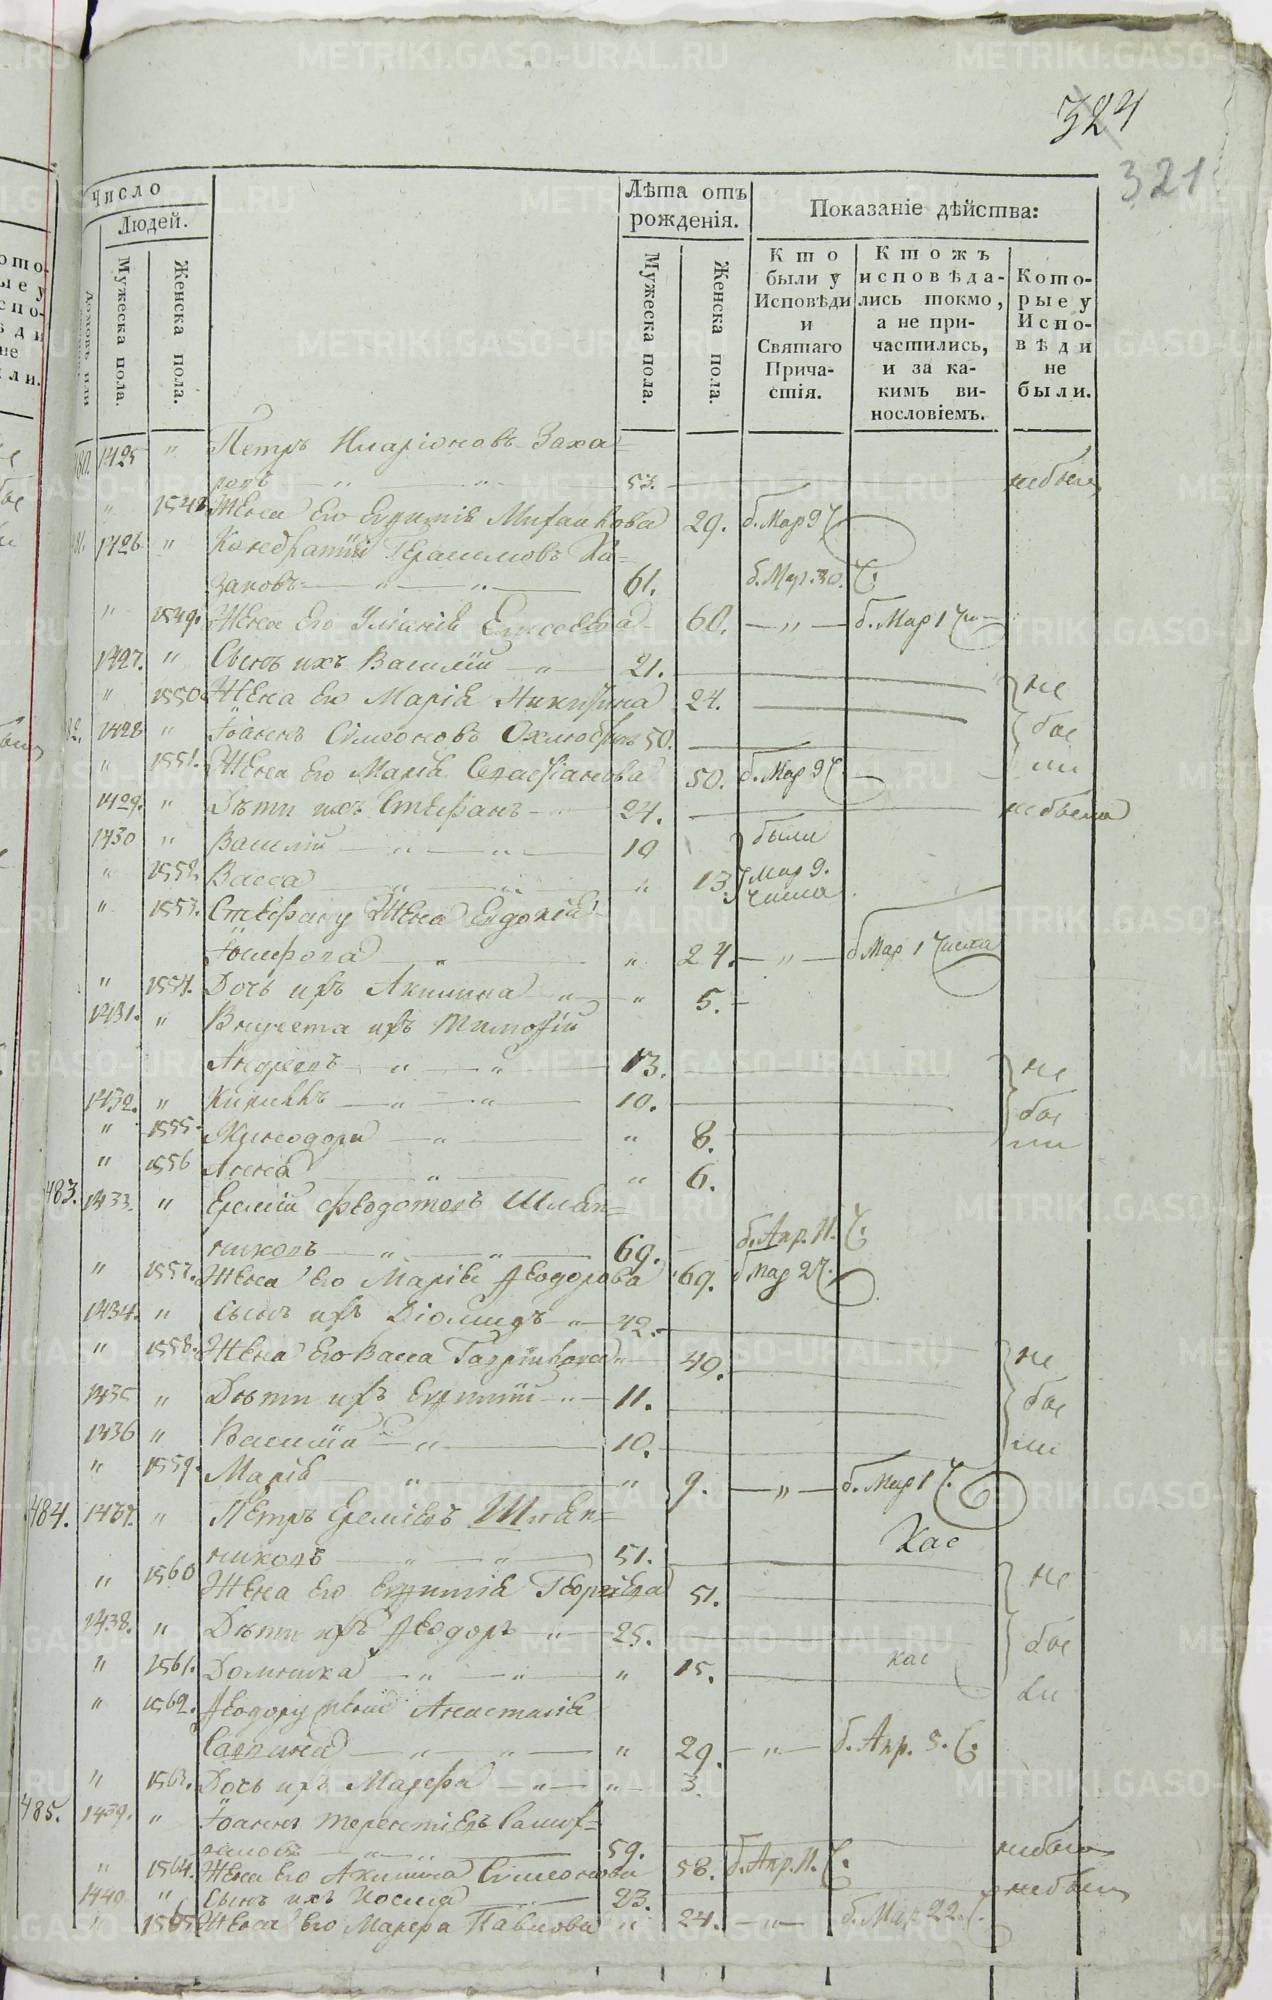 324
321
Число
Людей.
Мужеска пола.
Женска пола.
Лѣта отъ
рожденія.
Мужеска пола.
Женска пола.
Показаніе дѣйства:
Кто
были у
Исповѣди
и
Святаго
Прича-
стія.
Ктожъ
исповѣда-
лись токмо,
а не при-
частились,
и за ка-
кимъ ви-
нословіемъ.
Кото-
рые у
Испо-
вѣди
не
были.
1425 " Петръ Иларіоновъ Заха-
ровъ — " — " 53. — небылъ
" 1548 Жена Его Евфимія Михайлова 29. б. Мар 9 Ч.
1426 " Кондратій Герасимовъ Ка-
заковъ — " — " 61. б. Мар. 30. Ч.
" 1549. Жена Его Улианія Елисеева 60. — " — б. Мар 1 Чи
1427. " Сынъ ихъ Василій — " 21. —
" 1550 Жена Ея Марія Никитина 24. — не
82. 1428 " Іоаннъ Симеоновъ 50. — бы
" 1551. Жена Его Марія 50. б. Мар 9 Ч. — ли
1429. " Дѣти ихъ Стефанъ — 24. — небылъ
1430 " Василій — " — " 19 были
" 1552 Васса — " — " " 13. Мар 9.
числа
" 1553. Стефану Жена Евдокія
Іосифова — " " 24. — " — б Мар 1 Числа
" 1554. Дочь ихъ Акилина — " — " 5. —
1431. " Внучета ихъ Тимофій
Андреевъ — " — " 13. — не
1432. " Кириллъ — " — " 10. — бы
" 1555. Минодора — " " 8. — ли
" 1556 Анна — " " 6.
483. 1433. " Еремій Феодотовъ Шляп-
никовъ — " — " 69. — б. Апр. 11. Ч.
" 1557. Жена Его Марія Феодорова 69. б Мар 27.
1434. " Сынъ ихъ Діомидъ — " — 42. —
" 1558. Жена Его Васса Гаврилова " 40. — не
1435 " Дѣти ихъ Евфимій — " — 11. — бы
1436 " Василій — " — 10. — ли
" 1559. Марія — " — " 9. — " — б. Мар 1 Ч.
484. 1437. " Петръ Еремѣевъ Шляп-
Хас
никовъ — " — " 51. —
" 1560 Жена Его Евфимія Георгіева 51. — не
1438. " Дѣти ихъ Феодоръ — " — 25. — бы
" 1561. Домника — " — " " 15. — хас
ли
" 1562. Феодору жена Анастасія
Саввина — " — " — " 29. — " — б. Апр. 5. Ч.
" 1563. Дочь ихъ Марфа — " — " 3.
485. 1439. " Іоаннъ Терентіевъ
— 59. — небылъ
" 1564. Жена Его Акилина Симеонова 58. б. Апр. 11. Ч.
1440 " Сынъ ихъ Косма — 23. — небылъ
" 1565 Жена Его Марфа Павлова " 24. — " — б. Мар 22. Ч.